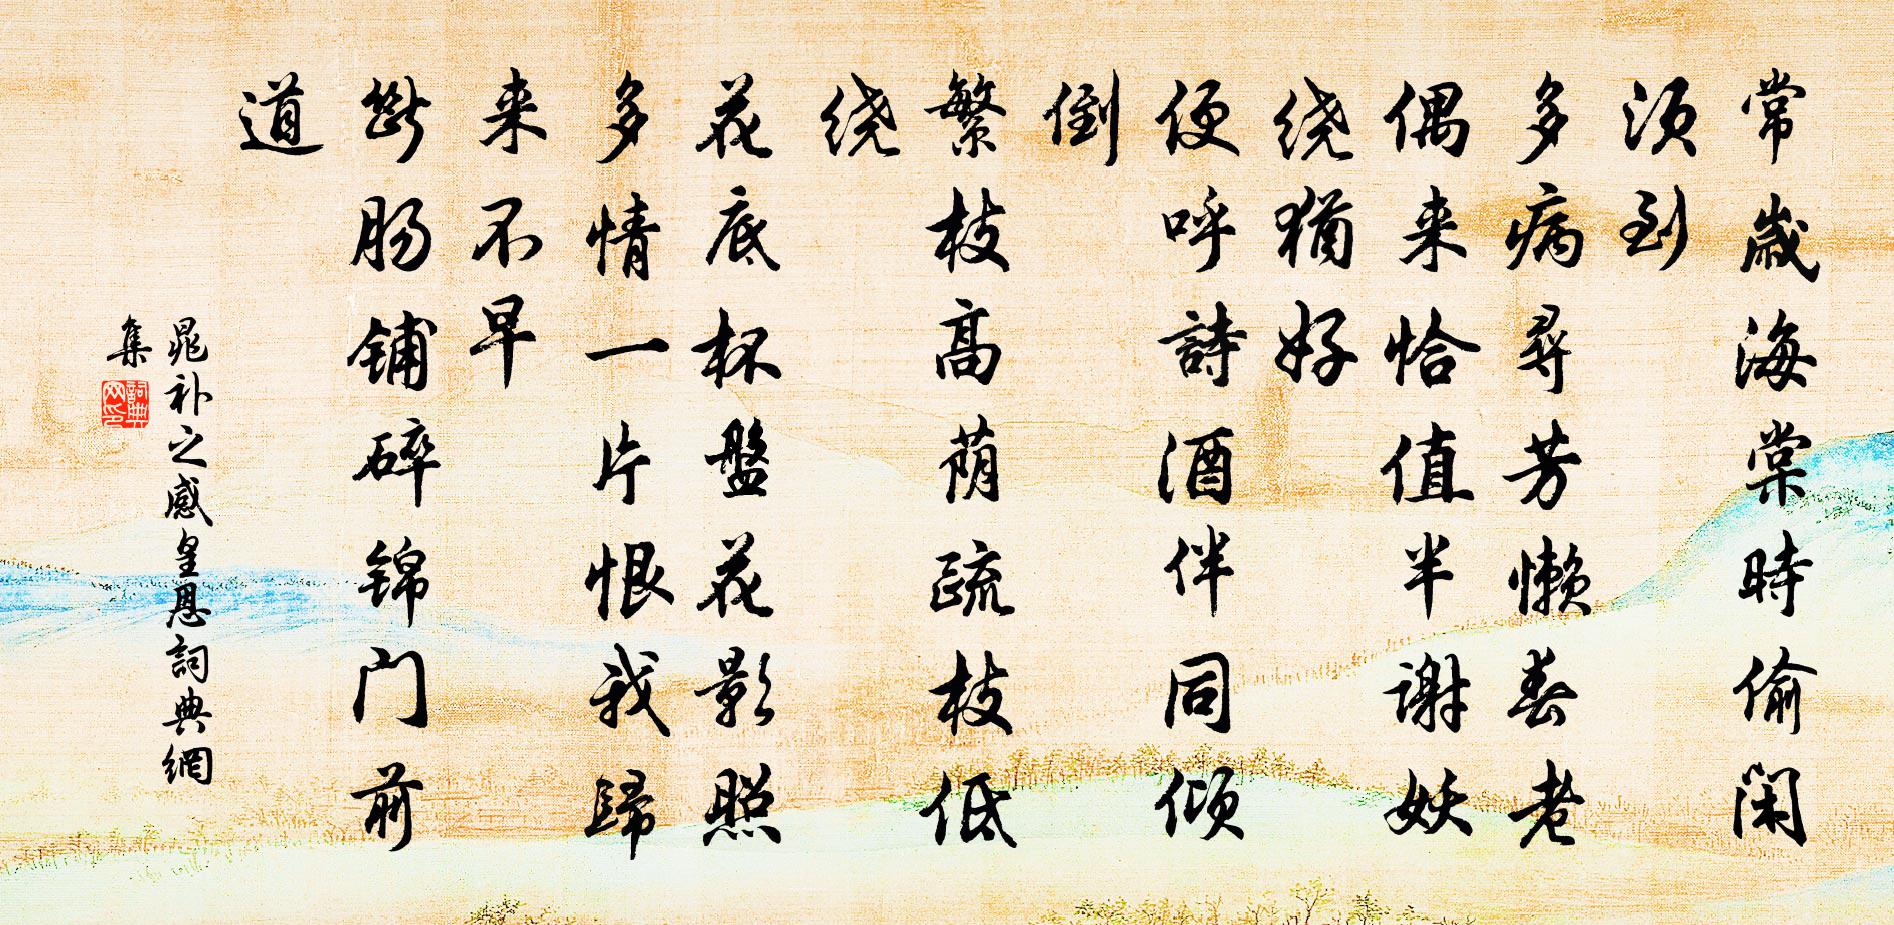 常歲海棠時偷閑
须到
多病尋芳懒春老
偶来恰值半謝妖
绕猶好
便呼詩酒伴同倾
倒
繁枝高荫疏枝低
绕
花底杯盤花影照
多情一片恨我歸
来不早
斷肠铺碎锦门前
道
晁补之感皇恩詞典網
集
詞典网印